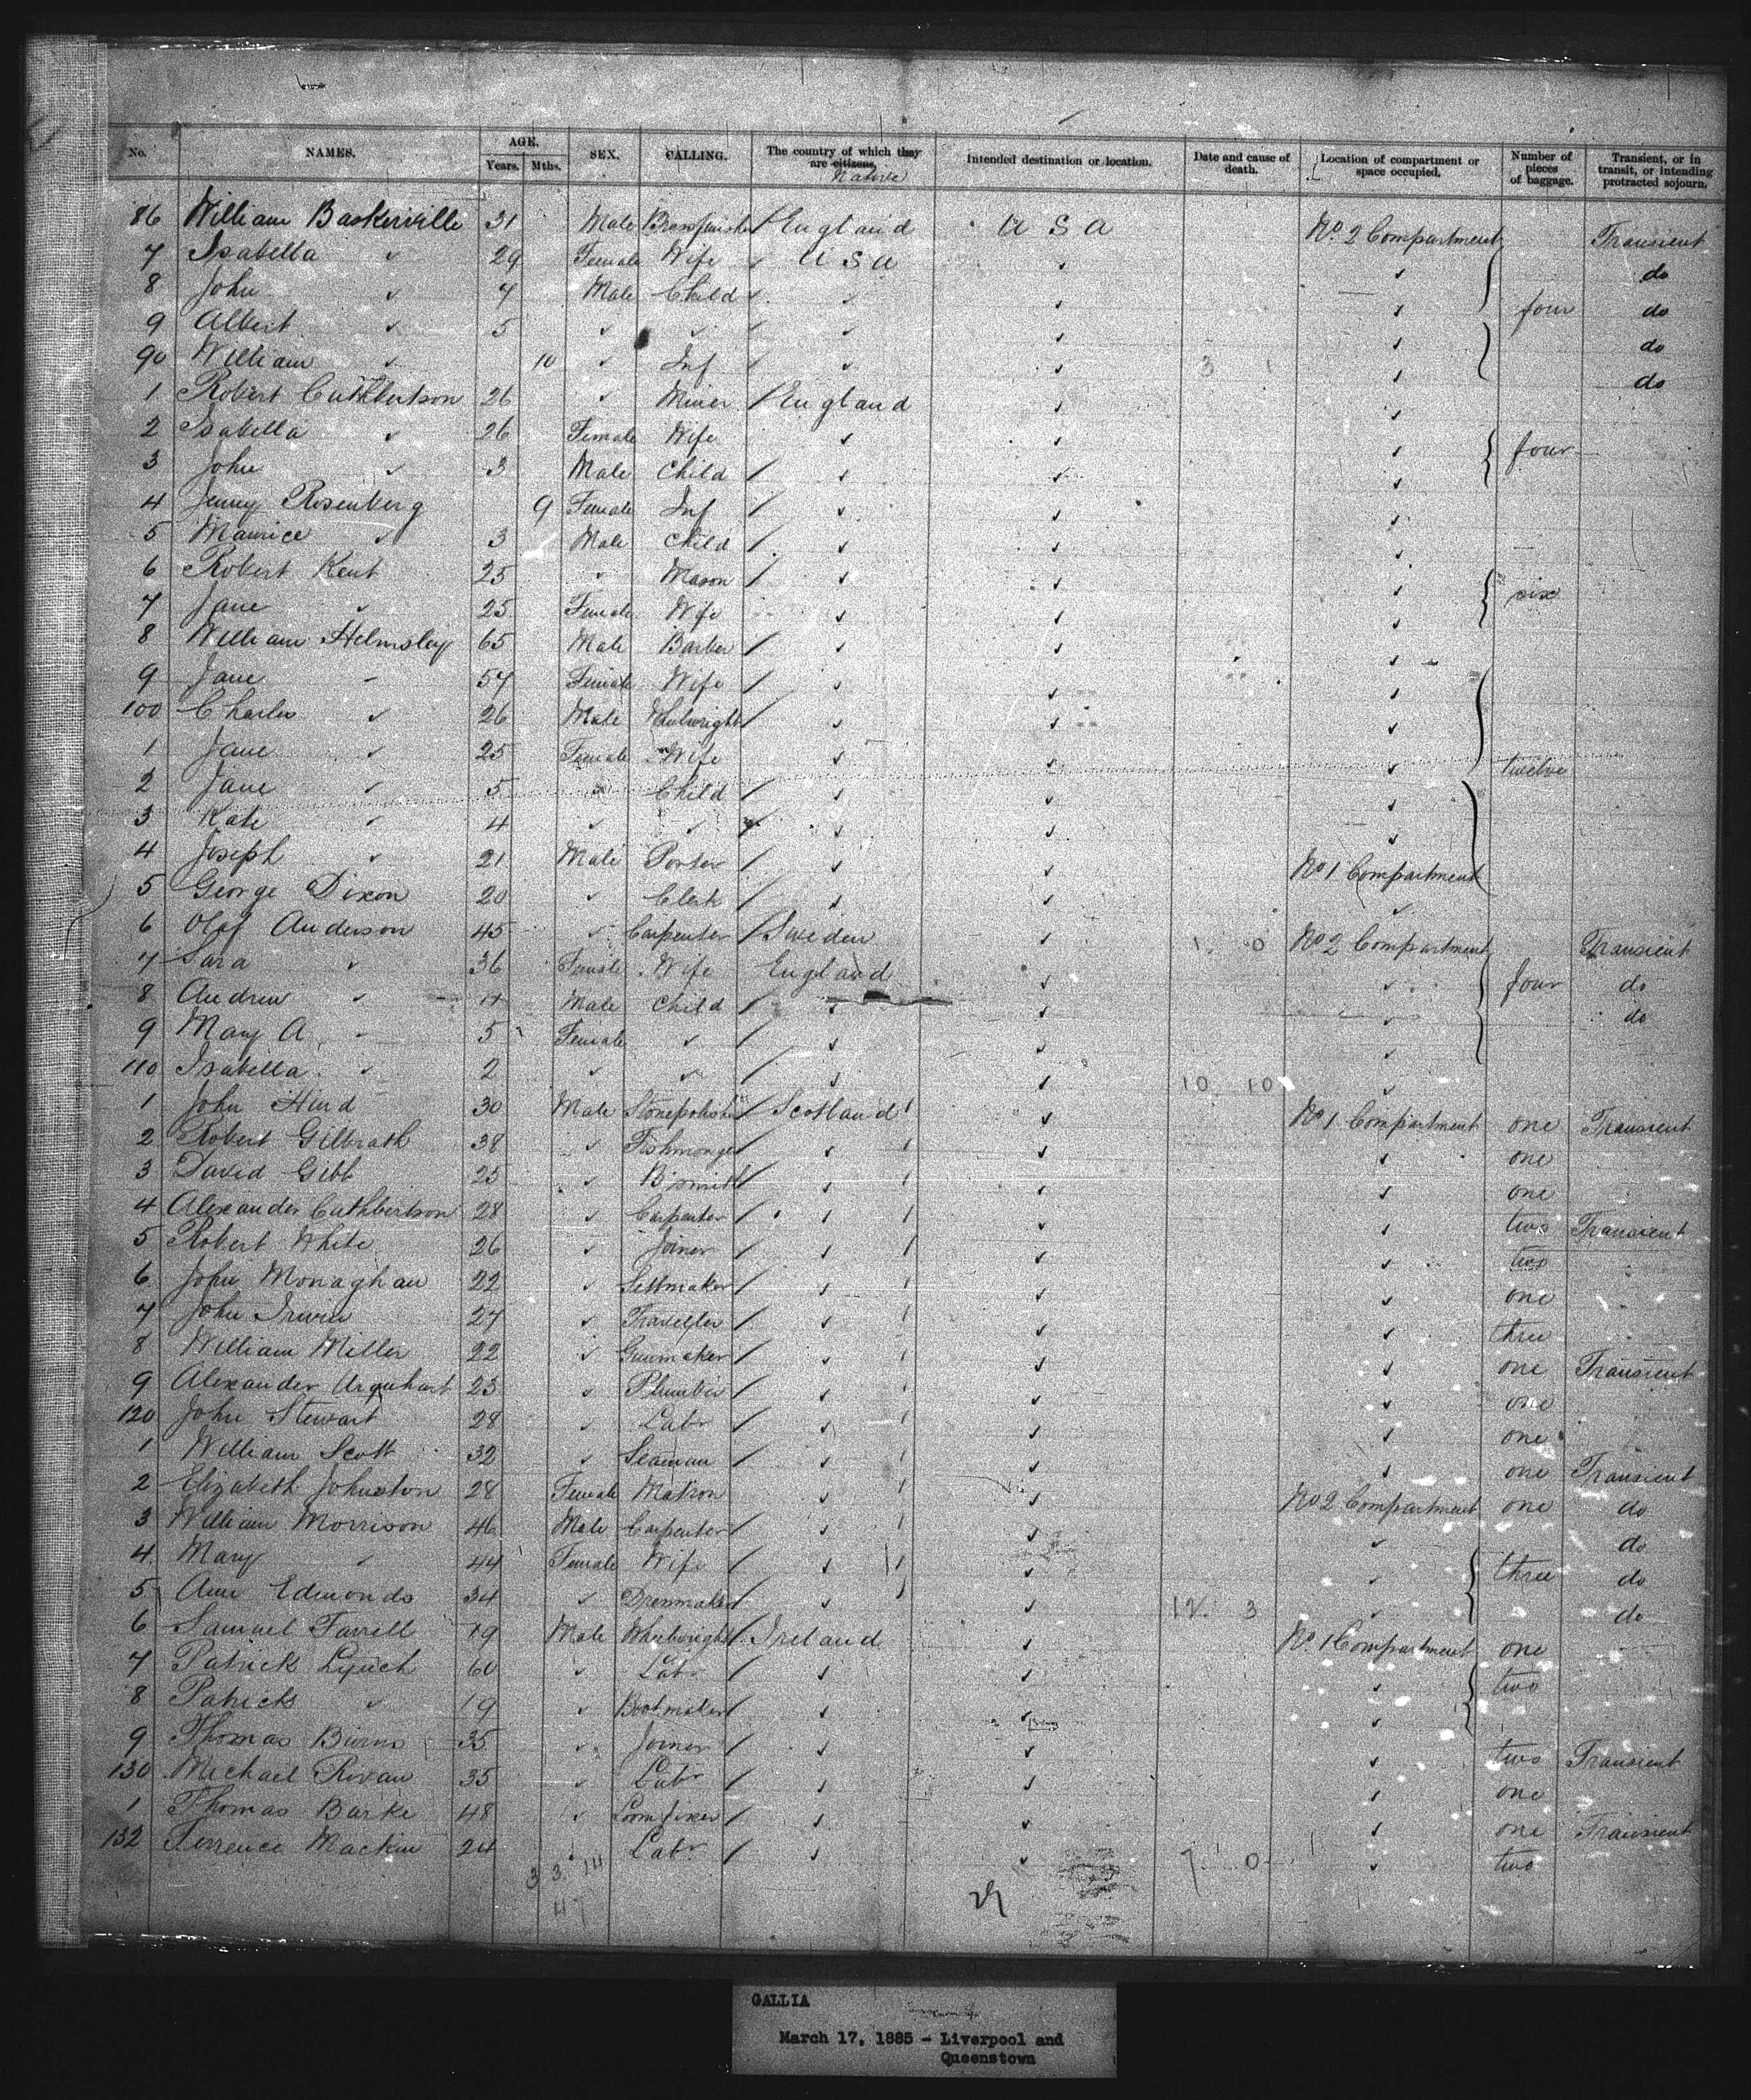 No. NAMES. AGE. Years. Mths. SEX. CALLING. The country of which they are citizens. Native Intended destination or location. Date and cause of death. Location of compartment or space occupied. Number of pieces of baggage. Transient, or in transit, or intending protracted sojourn.
86 William Baskerville 31 Male England U S A No. 2 Compartment Transient
7 Isabella ✓ 29 Female Wife ✓ U S A ✓ ✓ do
8 John ✓ 7 Male Child ✓ ✓ ✓ ✓ four do
9 Albert ✓ 5 ✓ ✓ ✓ ✓ ✓ do
90 William ✓ 10 ✓ Inf ✓ ✓ ✓ do
1 Robert Cuthbertson 26 ✓ Miner England ✓ ✓
2 Isabella ✓ 26 Female Wife ✓ ✓ ✓ four
3 John ✓ 3 Male Child ✓ ✓ ✓
4 Jenny Rosenberg 9 Female Inf ✓ ✓ ✓
5 Maurice ✓ 3 Male Child ✓ ✓ ✓
6 Robert Kent 25 ✓ Mason ✓ ✓ ✓ six
7 Jane ✓ 25 Female Wife ✓ ✓ ✓
8 William Helmsley 65 Male Barber ✓ ✓ ✓
9 Jane 57 Female Wife ✓ ✓ ✓
100 Charles ✓ 26 Male Wheelwright ✓ ✓ ✓
1 Jane ✓ 25 Female Wife ✓ ✓ ✓ twelve
2 Jane ✓ 5 ✓ Child ✓ ✓ ✓
3 Kate ✓ 4 ✓ ✓ ✓ ✓ ✓
4 Joseph ✓ 21 Male Porter ✓ ✓ No 1 Compartment
5 George Dixon 20 ✓ Clerk ✓ ✓ ✓
6 Olaf Anderson 45 ✓ Carpenter Sweden ✓ 1 0 No 2 Compartment Transient
7 Sara ✓ 36 Female Wife England ✓ ✓ four do
8 Andrew ✓ Male Child ✓ ✓ ✓ do
9 Mary A. 5 Female ✓ ✓ ✓ ✓
110 Isabella ✓ 2 ✓ ✓ ✓ ✓ 10 10 ✓
1 John Hind 30 Male Stonepolisher Scotland ✓ No 1 Compartment one Transient
2 Robert Gilbrath 38 ✓ Fishmonger ✓ ✓ ✓ one
3 David Gibb 23 ✓ B'smith ✓ ✓ ✓ one
4 Alexander Cuthbertson 28 ✓ Carpenter ✓ ✓ ✓ two Transient
5 Robert White 26 ✓ Joiner ✓ ✓ ✓ two
6 John Monaghan 22 ✓ Settmaker ✓ ✓ ✓ one
7 John Irwin 27 ✓ Traveller ✓ ✓ ✓ three
8 William Miller 22 ✓ Gunmaker ✓ ✓ ✓ one Transient
9 Alexander Urquhart 23 ✓ Plumber ✓ ✓ ✓ one
120 John Stewart 28 ✓ Labr ✓ ✓ ✓ one
1 William Scott 32 ✓ Seaman ✓ ✓ ✓ one Transient
2 Elizabeth Johnston 28 Female Matron ✓ ✓ No 2 Compartment one do
3 William Morrison 46 Male Carpenter ✓ ✓ ✓ do
4 Mary ✓ 44 Female Wife ✓ ✓ ✓ three do
5 Ann Edmonds 34 ✓ Dressmaker ✓ ✓ 12 3 ✓ do
6 Samuel Farrell 19 Male Wheelwright Ireland ✓ No. 1 Compartment one
7 Patrick Lynch 60 ✓ Labr ✓ ✓ ✓ two
8 Patrick ✓ 19 ✓ Bootmaker ✓ ✓ ✓
9 Thomas Burns 35 ✓ Joiner ✓ ✓ ✓ two Transient
130 Michael 35 ✓ Labr ✓ ✓ ✓ one
1 Thomas Barke 48 ✓ Loomfixer ✓ ✓ ✓ one Transient
132 Terrence Mackin 24 ✓ Labr ✓ ✓ 7 0 ✓ two
3 3 14
47
GALLIA
March 17, 1885 - Liverpool and
Queenstown